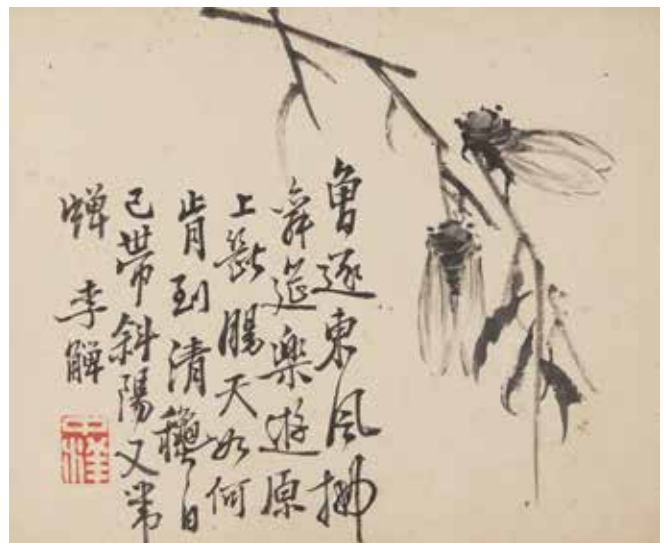 曾逐東風拂
舞筵樂遊原
上斷腸天如何
肯到清龝日
已帶斜陽又帶
蟬 李觶